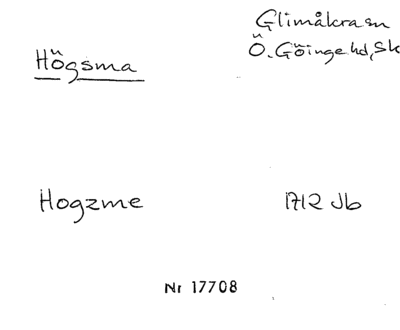 Glimåkra sn
Högsma
Ö. Göinge hd, Sk
Hogzme
1712 Jb
Nr 17708